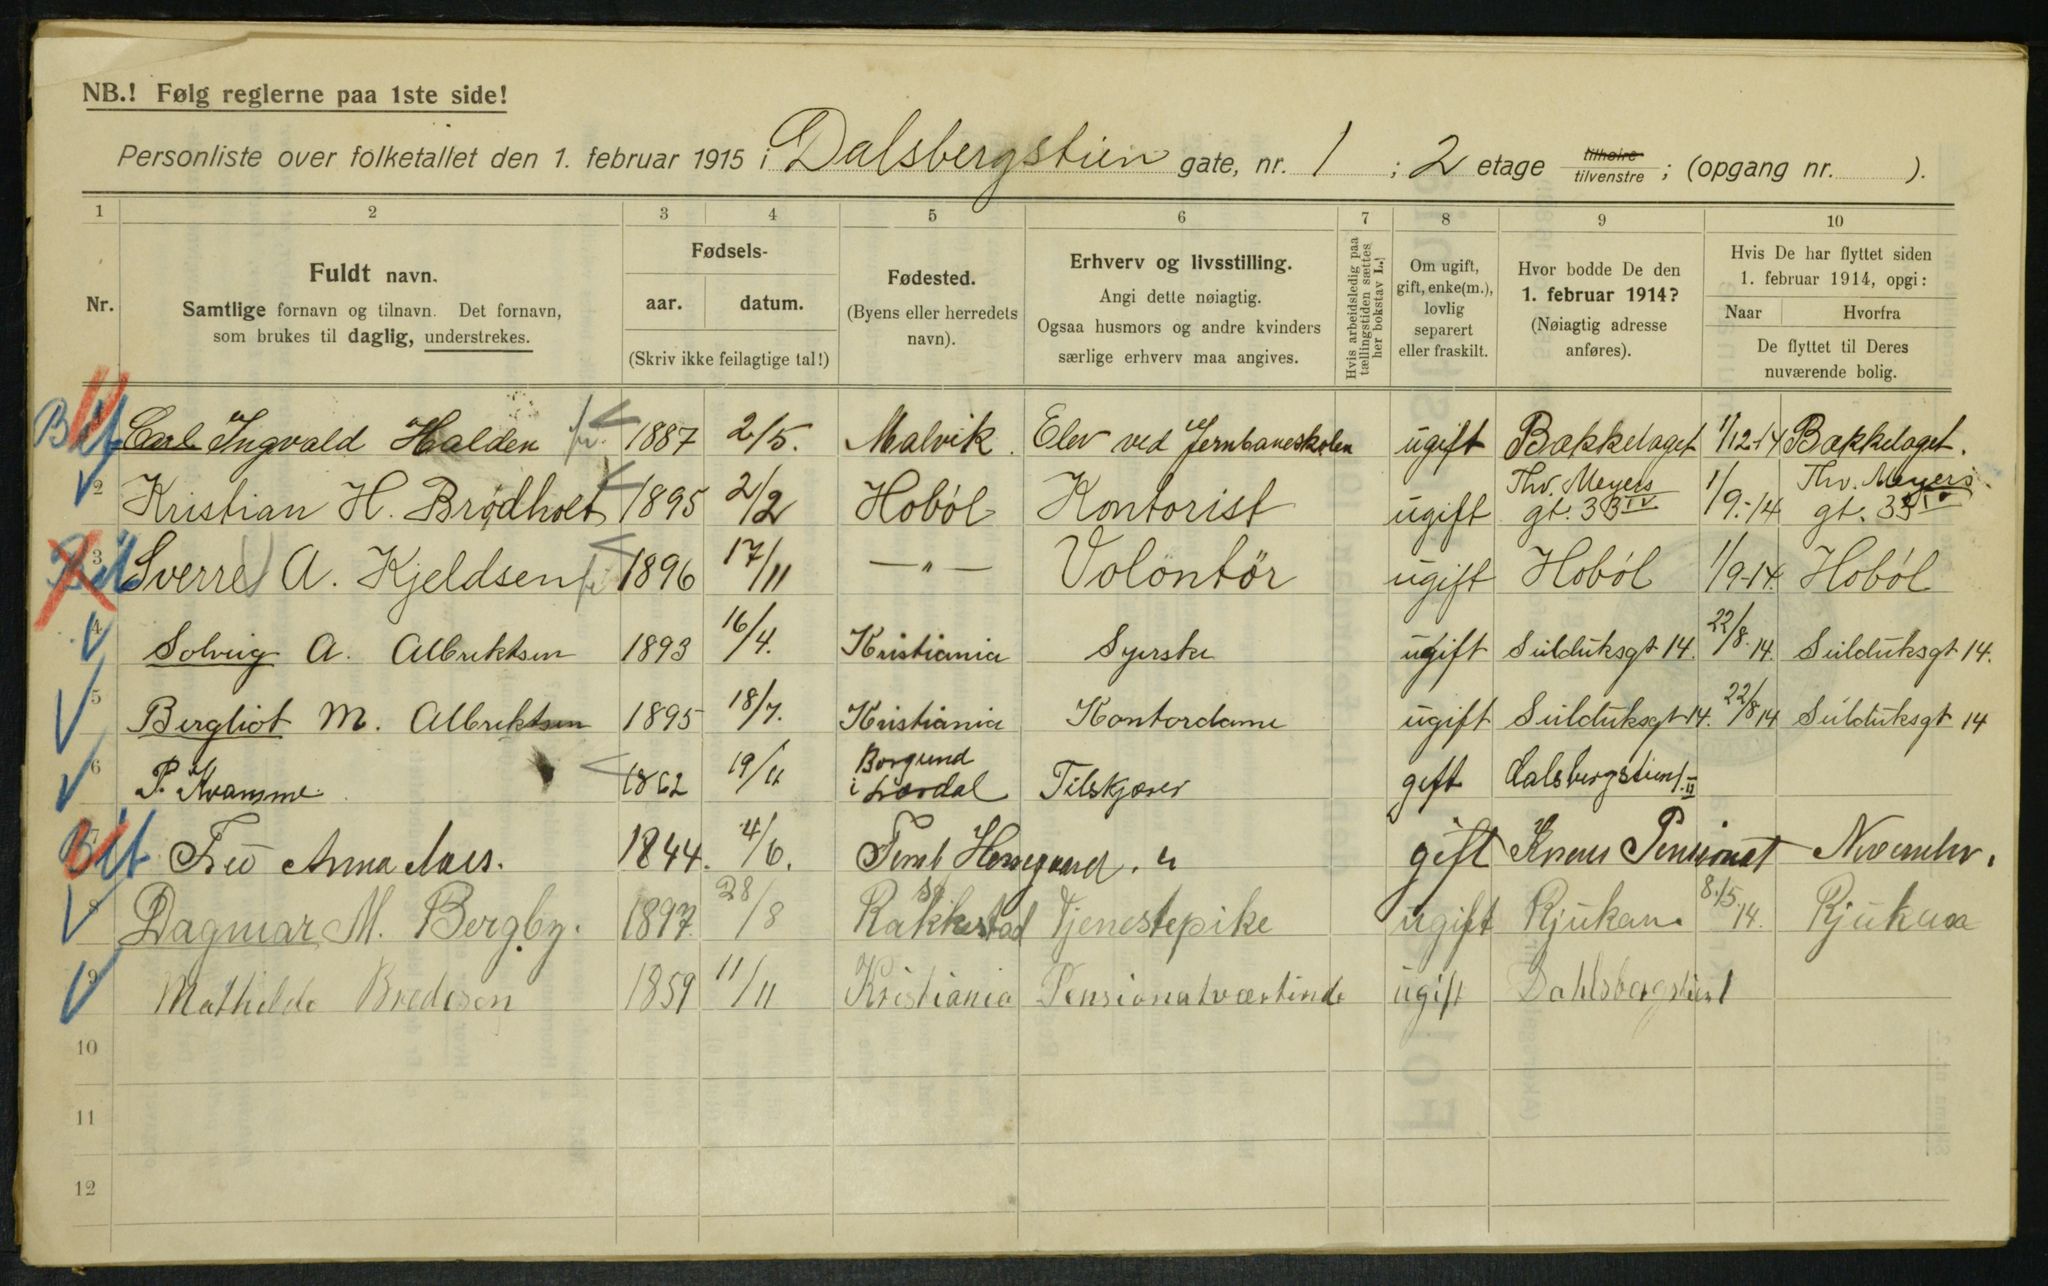 NB.! Følg reglerne paa 1ste side!
Personliste over folketallet den 1. februar 1915 i Dalsbergstien gate, nr. 1 ; 2 etage tilhoire tilvenstre ; (opgang nr. ).
1 2 3 4 5 6 7 8 9 10
Nr.
Fuldt navn.
Samtlige fornavn og tilnavn. Det fornavn,
som brukes til daglig, understrekes.
Fødsels-
aar. datum.
(Skriv ikke feilagtige tal!)
Fødested.
(Byens eller herredets
navn).
Erhverv og livsstilling.
Angi dette nøiagtig.
Ogsaa husmors og andre kvinders
særlige erhverv maa angives.
Hvis arbeidsledig paa
tællingstiden sættes
her bokstav L.
Om ugift,
gift, enke(m.),
lovlig
separert
eller fraskilt.
Hvor bodde De den
1. februar 1914?
(Nøiagtig adresse
anføres).
Hvis De har flyttet siden
1. februar 1914, opgi:
Naar Hvorfra
De flyttet til Deres
nuværende bolig.
Bit Carl Ingvald Halden fr. 1887 2/5. Malvik. Elev ved Jernbaneskolen ugift Bækkelaget 1/12-14 Bækkelaget.
2 Kristian H. Brødholt 1895 2/2 Hobøl Kontorist ugift Thv. Meyers gt. 33 IV 1/9.-14 Thv. Meyers gt. 33 IV
3 Sverre A. Kjeldsen fr 1896 17/11 — " — Volontör ugift Hobøl 1/9-14. Hobøl
4 Solveig A. Albriktsen 1893 16/4. Kristiania Syerske ugift Sulduksgt 14. 22/8. 14. Sulduksgt 14.
5 Bergliot M. Albriktsen 1895 18/7. Kristiania Kontordame ugift Sulduksgt 14. 22/8 14 Sulduksgt 14
6 P. Kvamme. 1862 19/11 Borgund i Lærdal Tilskjærer gift Dalsbergstien 1. II
7 Bit Fru Anna Aars. 1844. 4/6. gift Pensionat Novembr.
8 Dagmar M. Bergby. 1897. 28/8 Rakkestad Tjenestepike ugift Rjukan. 8./5. 14. Rjukan
9 Mathilde Bredesen 1859 11/11 Kristiania Pensionatværtinde ugift Dahlsbergstien 1
10
11
12